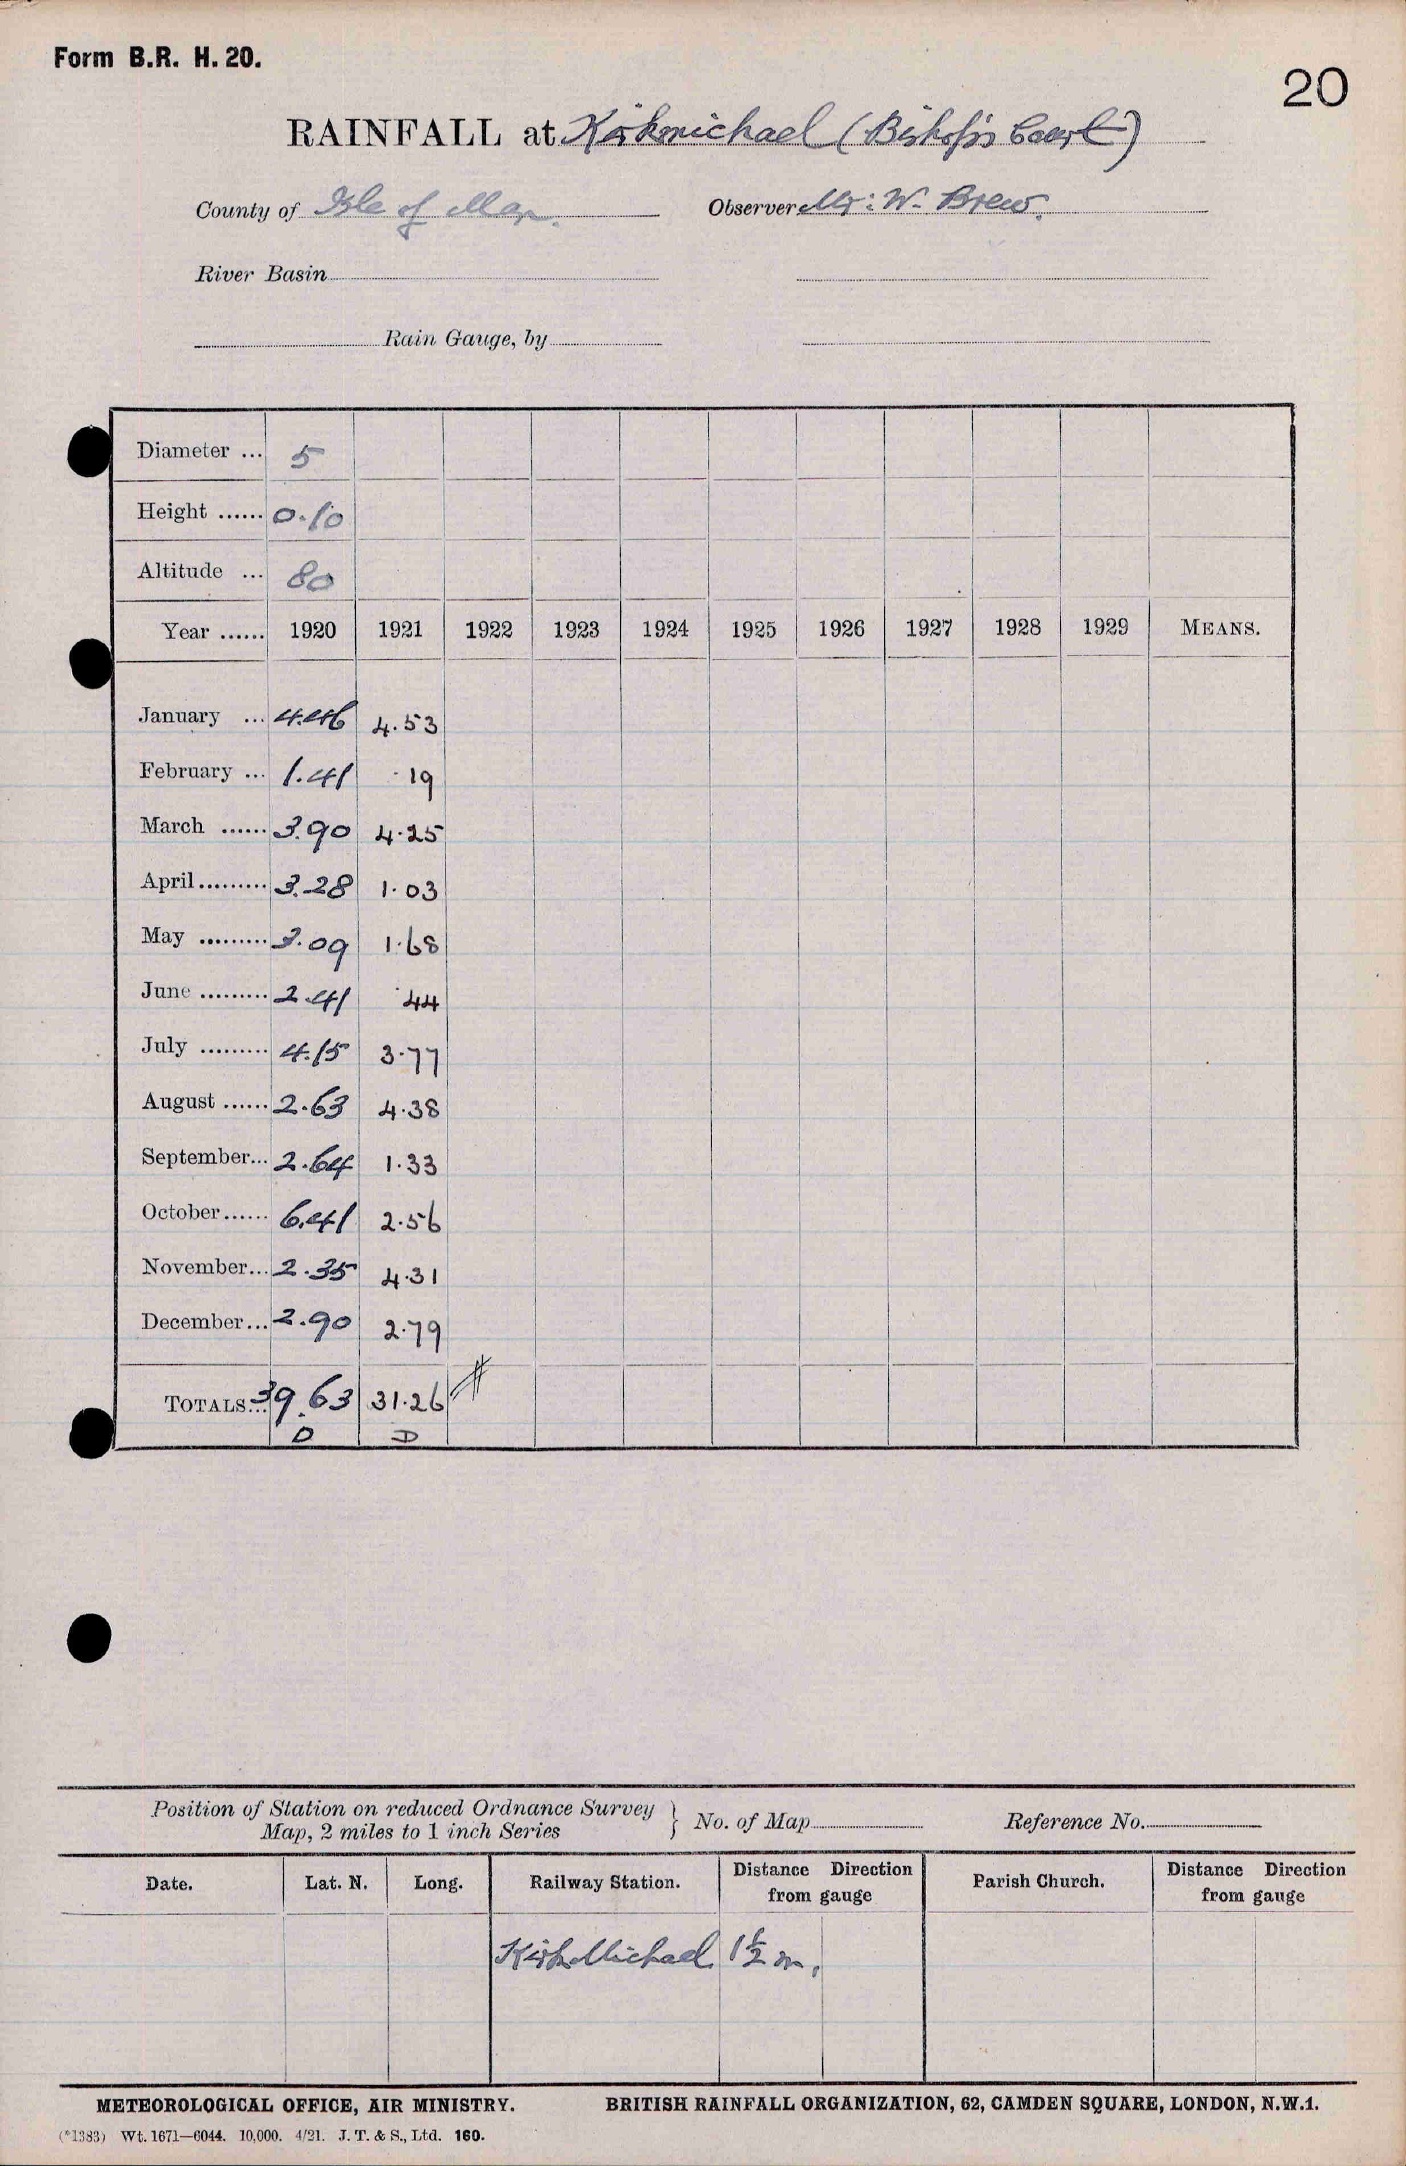 Form B.R. H. 20.
20
RAINFALL at Kirkmichael (Bishop's Court)
County of Isle of Man. Observer Mr. W. Brew.
River Basin
Rain Gauge, by
Diameter ... 5
Height ...... 0.10
Altitude ... 80
Year ...... 1920 1921 1922 1923 1924 1925 1926 1927 1928 1929 MEANS.
January ... 4.46 4.53
February ... 1.41 .19
March ...... 3.90 4.25
April......... 3.28 1.03
May ......... 3.09 1.68
June ......... 2.41 .44
July ......... 4.15 3.77
August ...... 2.63 4.38
September... 2.64 1.33
October...... 6.41 2.56
November... 2.35 4.31
December... 2.90 2.79
TOTALS... 39.63 31.26 #
D D
Position of Station on reduced Ordnance Survey
Map, 2 miles to 1 inch Series } No. of Map Reference No.
Date. Lat. N. Long. Railway Station. Distance Direction from gauge Parish Church. Distance Direction from gauge
Kirk Michael 1½ m.
METEOROLOGICAL OFFICE, AIR MINISTRY. BRITISH RAINFALL ORGANIZATION, 62, CAMDEN SQUARE, LONDON, N.W.1.
(*1383) Wt. 1671—6044. 10,000. 4/21. J. T. & S., Ltd. 160.